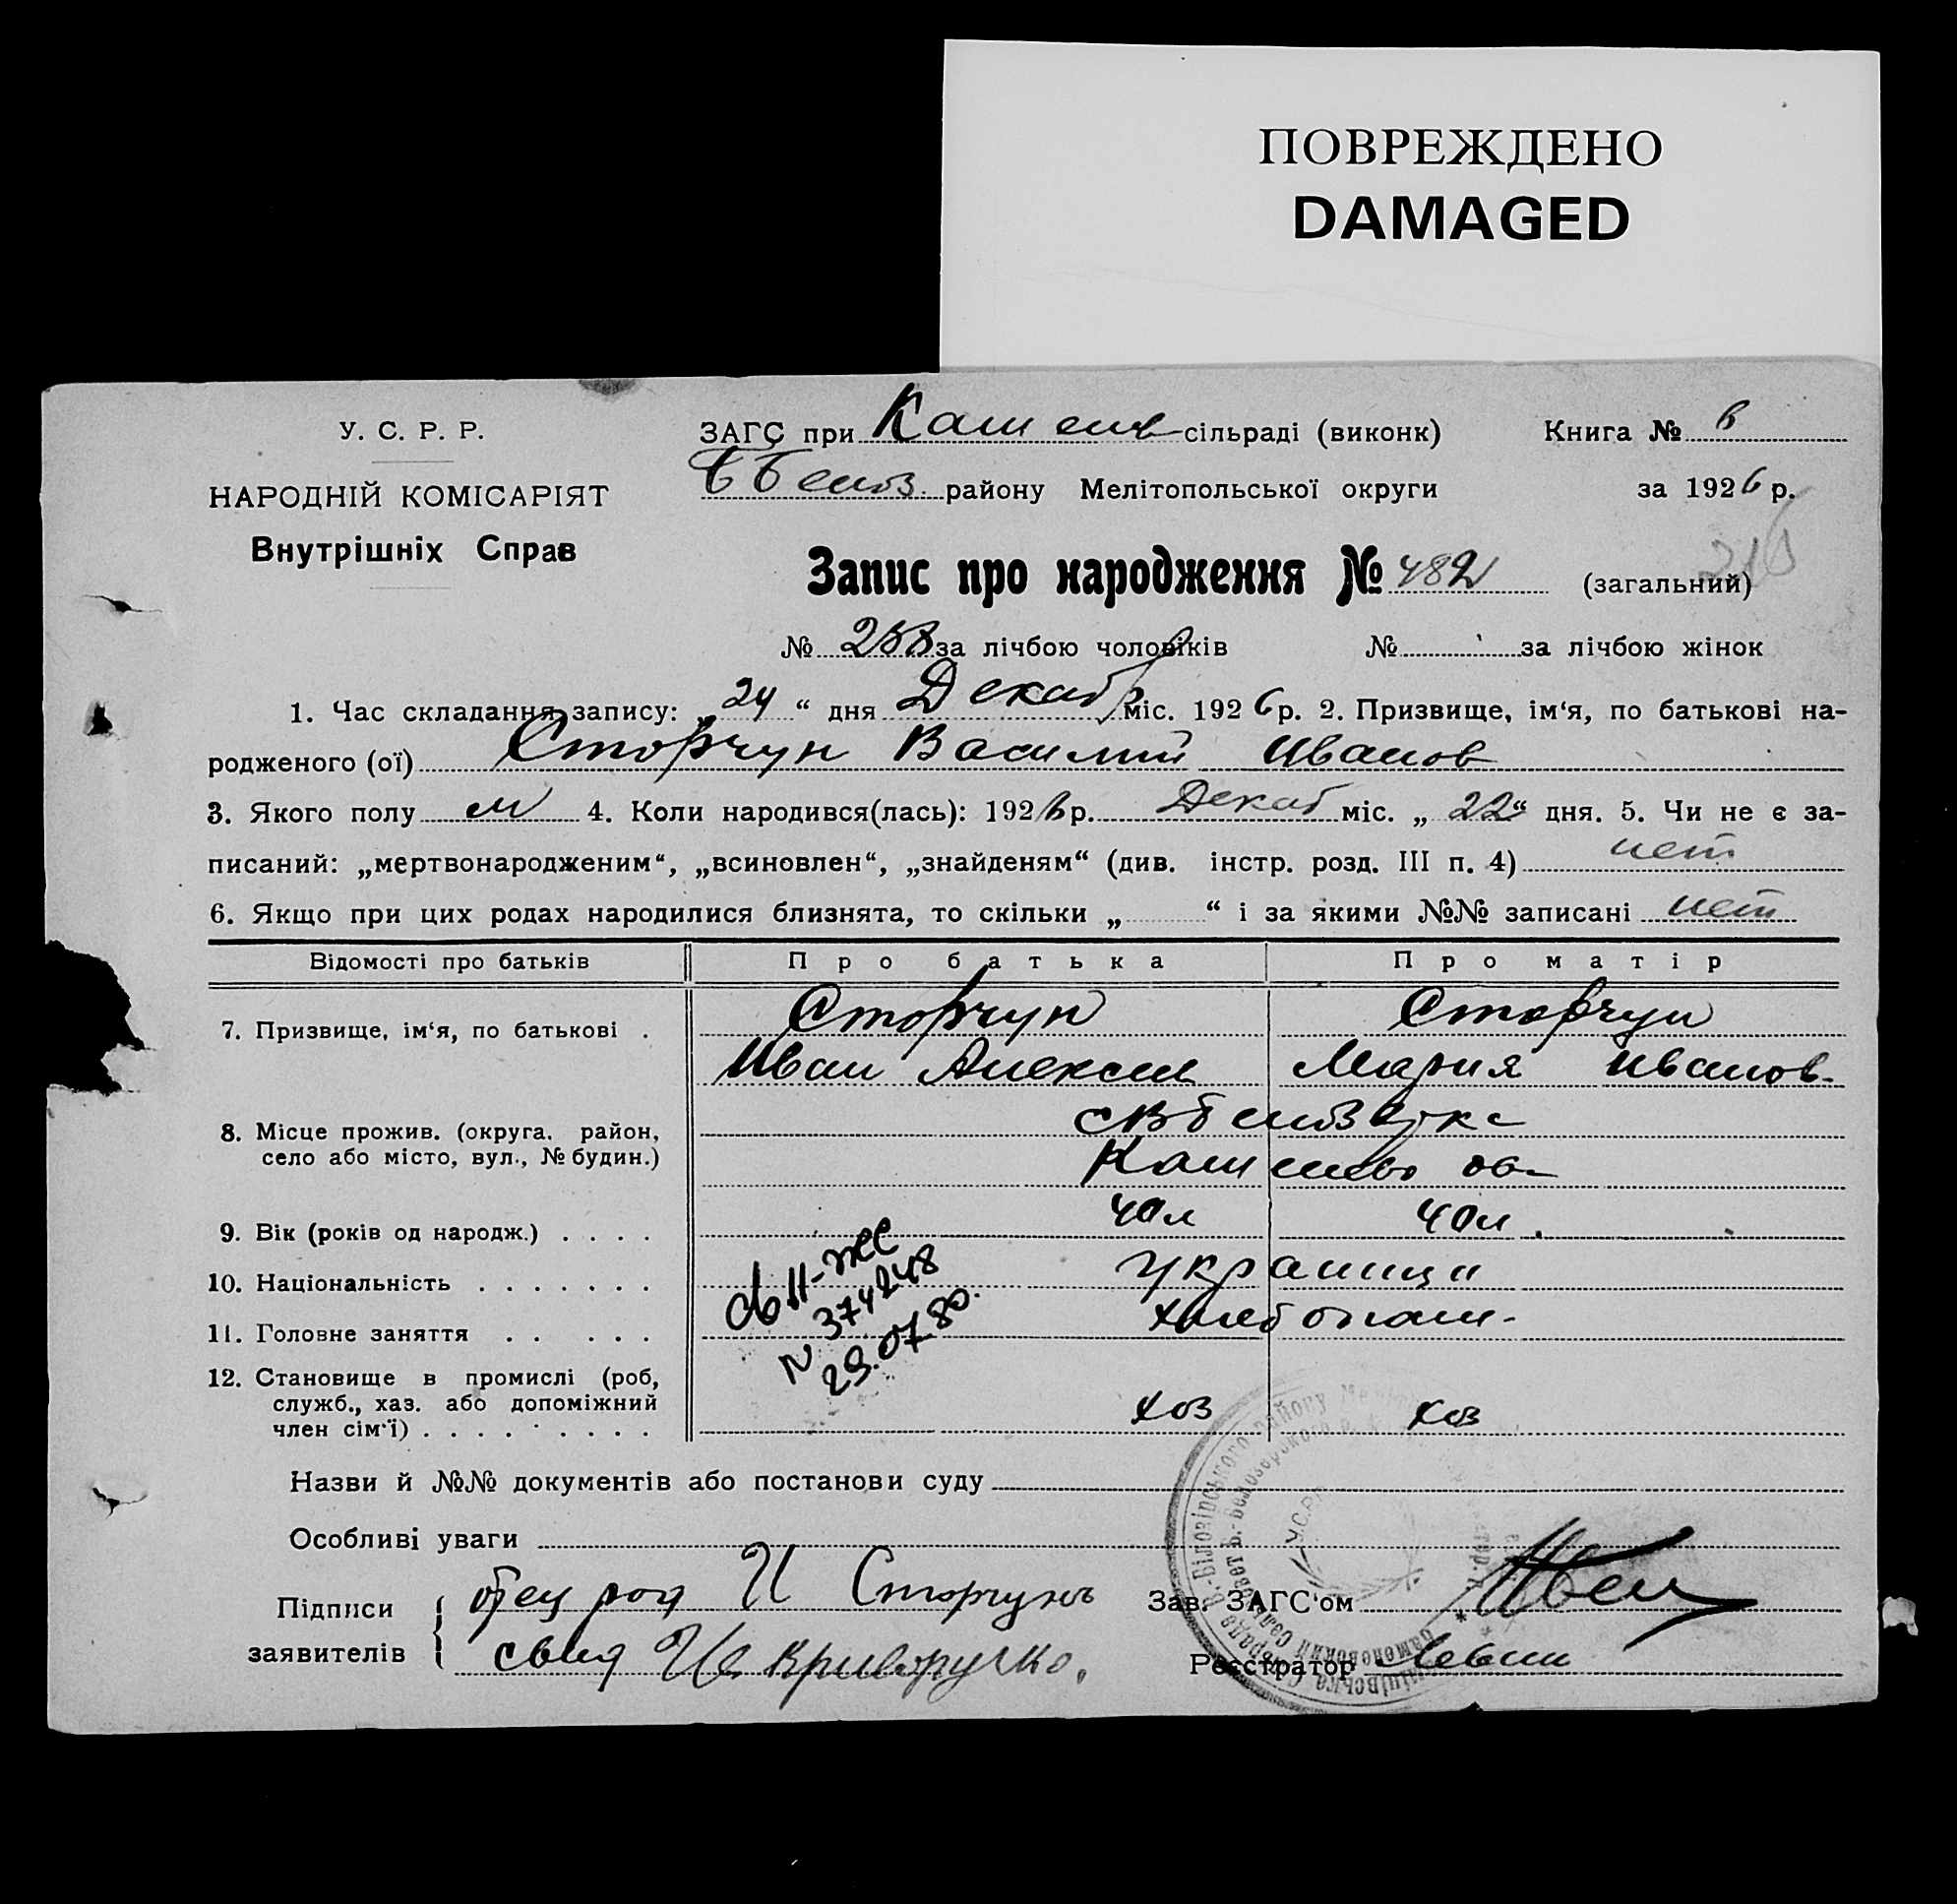 ПОВРЕЖДЕНО
DAMAGED
У. С. Р. Р.
НАРОДНІЙ КОМІСАРІЯТ
Внутрішніх Справ
ЗАГС при сільраді (виконк)
Книга № 6
району Мелітопольської округи
за 1926 р.
Запис про народження № 482 (загальний)
№ за лічбою чоловіків № за лічбою жінок
1. Час складання запису: „24“ дня Декаб міс. 1926 р. 2. Призвище, ім‘я, по батькові на-
родженого (ої) Сторчун Василий Иванов
3. Якого полу м 4. Коли народився(лась): 1926 р. Декаб міс. „22“ дня. 5. Чи не є за-
писаний: „мертвонародженим“, „всиновлен“, „знайденям“ (див. інстр. розд. III п. 4) нет
6. Якщо при цих родах народилися близнята, то скільки „ “ і за якими №№ записані нет
Відомості про батьків Про батька Про матір
7. Призвище, ім‘я, по батькові . Сторчун Сторчун
Иван Алексеев Мария Иванов-
8. Місце прожив. (округа, район,
село або місто, вул., № будин.)
9. Вік (років од народж.) . . . . 40 л 40 л.
10. Національність . . . . . . . украинци
11. Головне заняття . . . . . хлебопаш-
св II-ЖС
N 374248
29.07.80.
12. Становище в промислі (роб,
служб., хаз. або допоміжний
член сім‘ї) . . . . . . . . . хоз хоз
Назви й №№ документів або постанови суду
Особливі уваги
Підписи
заявителів
отец И Сторчунъ
свид Ив Криворучко.
Зав. ЗАГС‘ом
Реєстратор Левин
У.С.Р.Р.